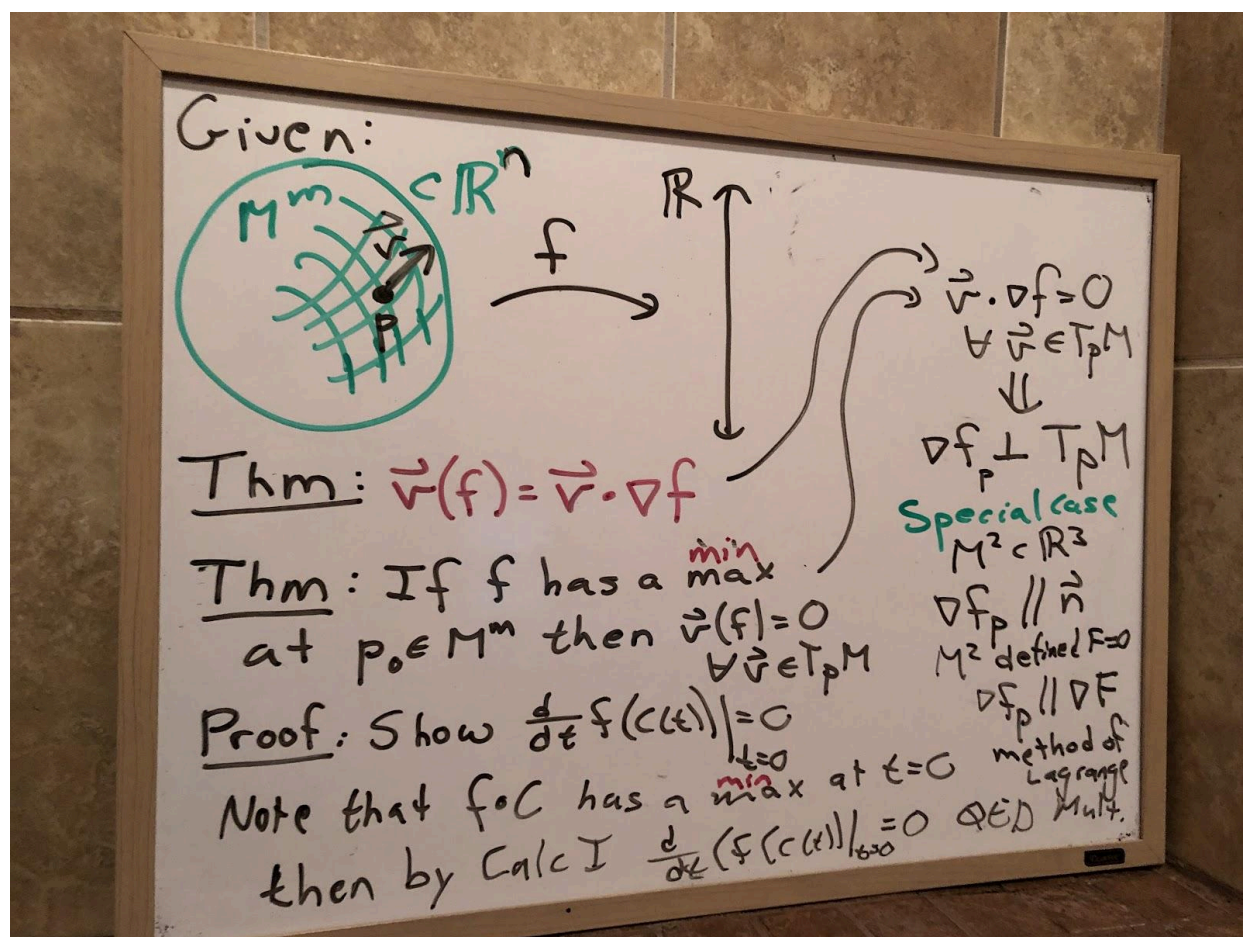 Given:
M^m ⊂ ℝ^n
v⃗
p
f
ℝ
Thm: v⃗(f) = v⃗ · ∇f
Thm: If f has a min max
at p₀ ∈ M^m then v⃗(f) = 0
∀ v⃗ ∈ TₚM
Proof: Show d/dt f(c(t))|_{t=0} = 0
Note that f∘c has a min max at t=0
then by Calc I d/dt (f(c(t))|_{t=0} = 0 QED
v⃗ · ∇f = 0
∀ v⃗ ∈ TₚM
⇓
∇fₚ ⊥ TₚM
Special case
M² ⊂ ℝ³
∇fₚ // n⃗
M² defined F=0
∇fₚ // ∇F
method of
Lagrange
Mult.